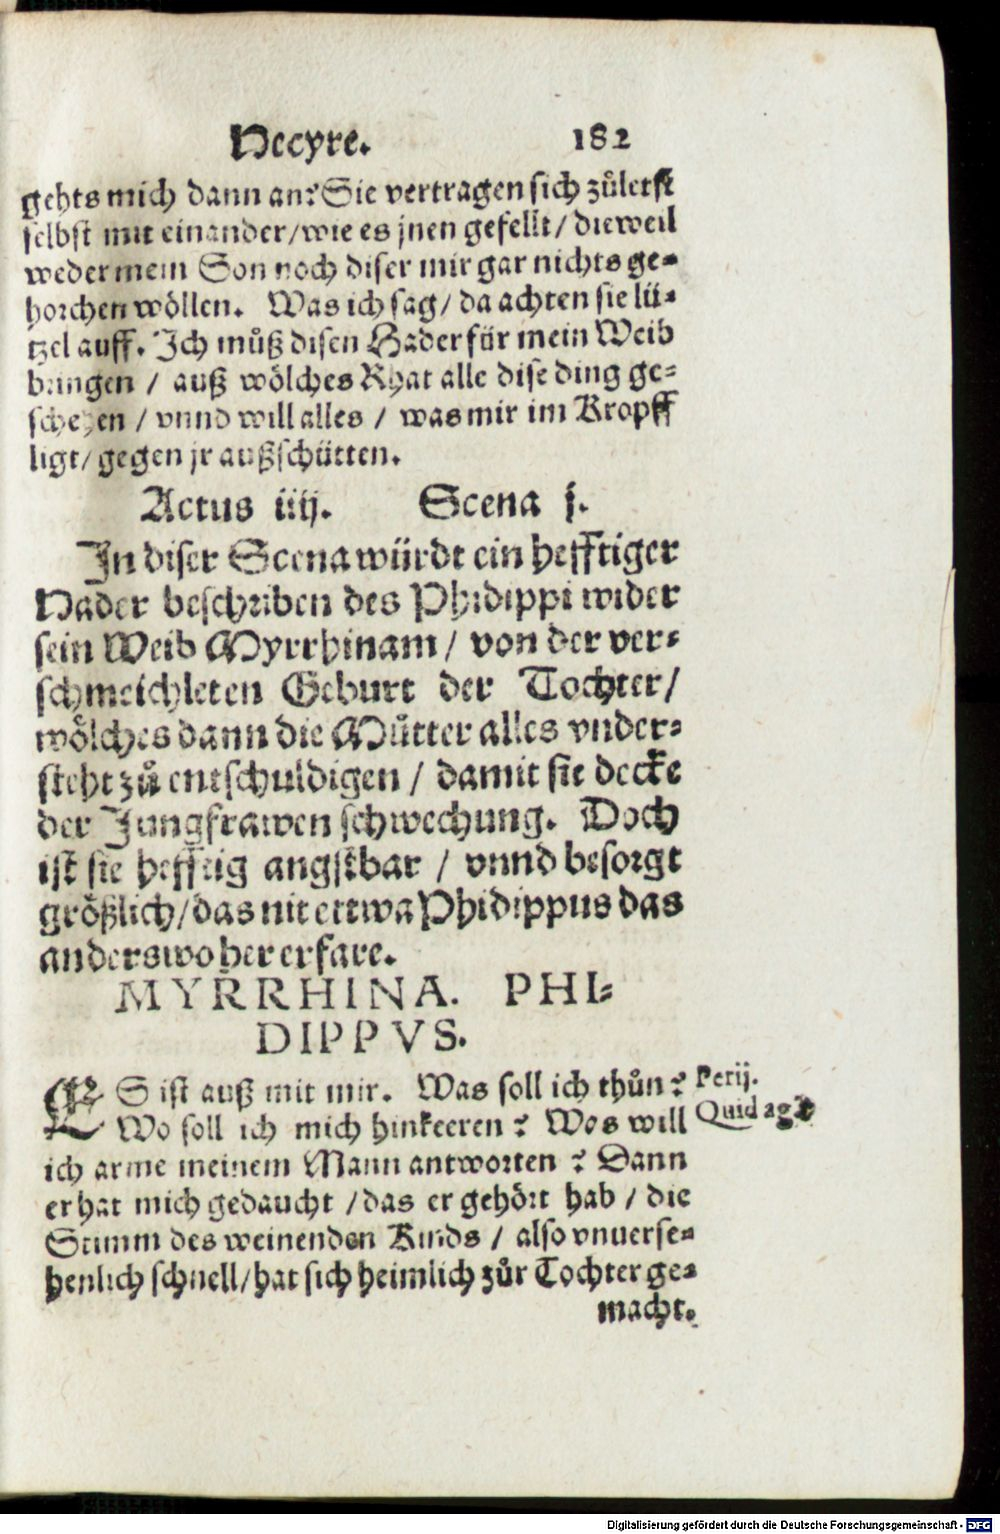 Hecyre. 182
gehts mich dann an? Sie vertragen sich zůletst
selbst mit einander/wie es jnen gefellt/ dieweil
weder mein Son noch diser mir gar nichts ge-
horchen wöllen. Was ich sag/ da achten sie lü-
tzel auff. Ich můß disen Hader für mein Weib
bringen / auß wölches Rhat alle dise ding ge-
schehen / vnnd will alles / was mir im Kropff
ligt/ gegen jr außschütten.
Actus iiij. Scena j.
In diser Scena würdt ein hefftiger
Hader beschriben des Phidippi wider
sein Weib Myrrhinam/ von der ver-
schmeichleten Geburt der Tochter/
wölches dann die Můtter alles vnder-
steht zů entschuldigen / damit sie decke
der Jungfrawen schwechung. Doch
ist sie hefftig angstbar / vnnd besorgt
größlich/das nit ettwa Phidippus das
anderswo her erfare.
MYRRHINA. PHI-
DIPPVS.
ES ist auß mit mir. Was soll ich thůn? Perij.
Wo soll ich mich hinkeeren? Wos will Quid agā
ich arme meinem Mann antworten? Dann
er hat mich gedaucht /das er gehört hab / die
Stimm des weinenden Kinds / also vnuerse-
henlich schnell/hat sich heimlich zůr Tochter ge-
macht.
Digitalisierung gefördert durch die Deutsche Forschungsgemeinschaft - DFG